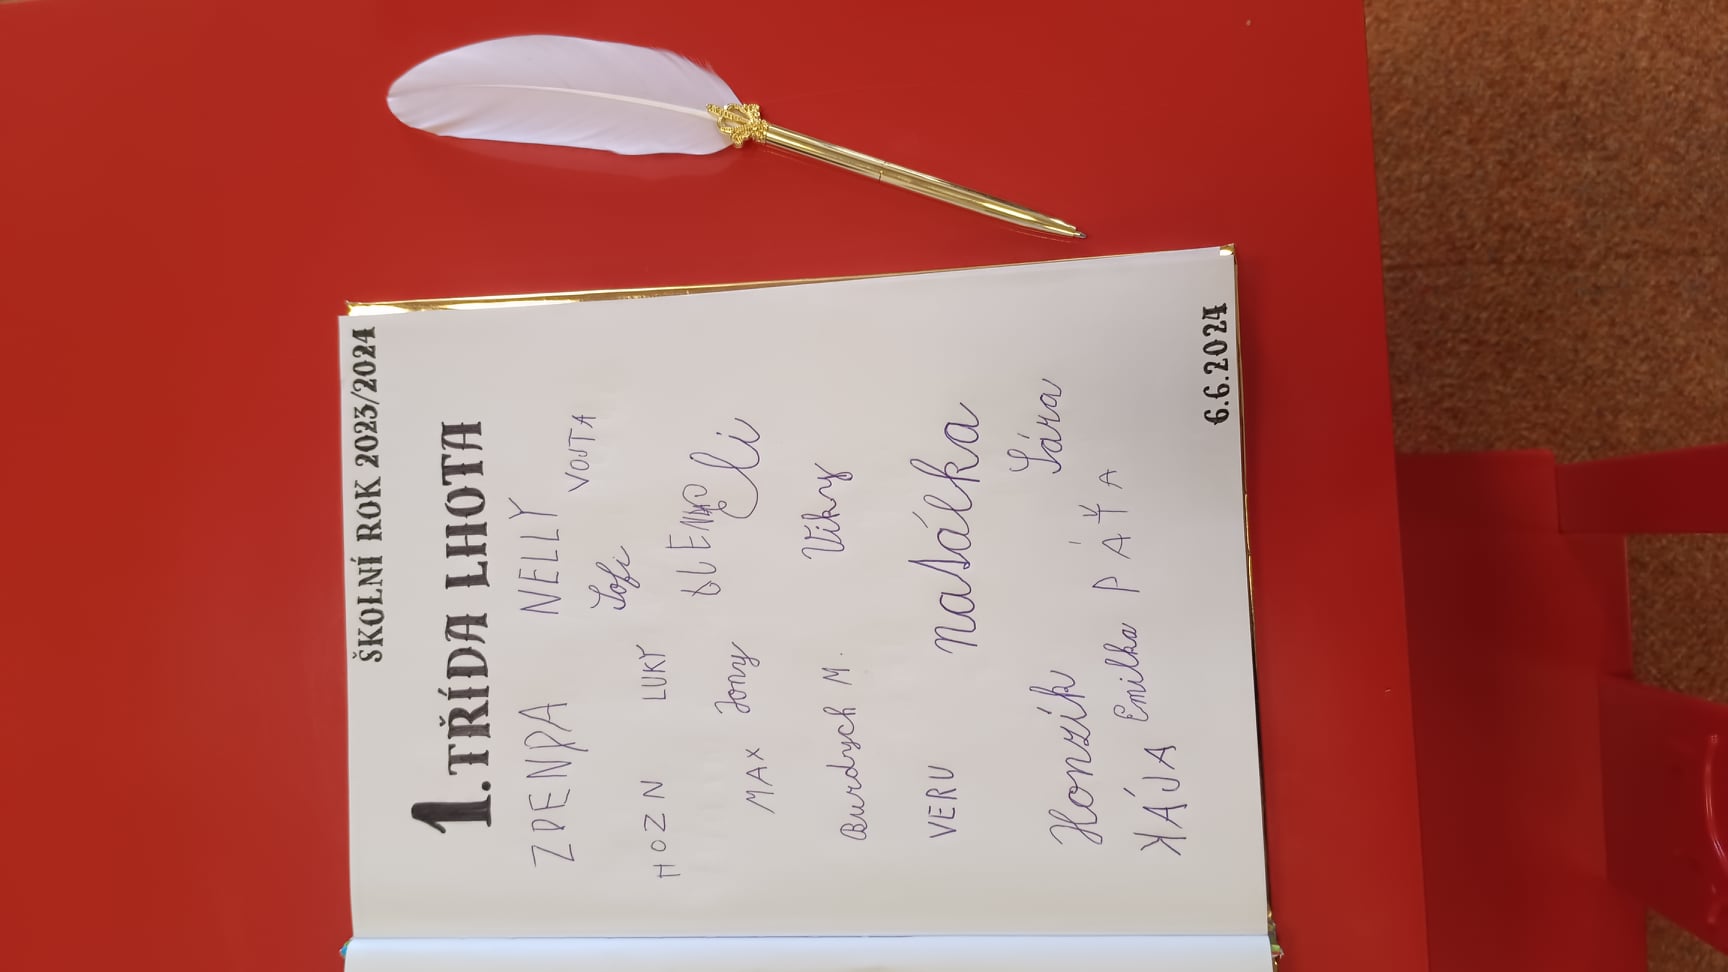 ŠKOLNÍ ROK 2023/2024
1. TŘÍDA LHOTA
ZDENDA NELLY
VOJTA
Sofi
HOZN LUKY
MAX Jony Eli
Burdych M. Viky
VERU Natálka
Honzík Sára
KÁJA Emilka PÁŤA
6.6.2024